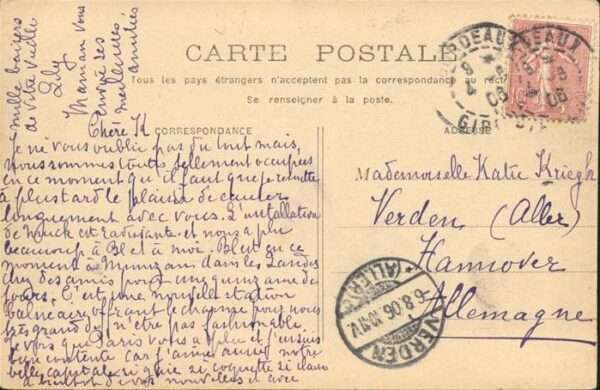 CARTE POSTALE
Tous les pays étrangers n'acceptent pas la correspondance au recto
Se renseigner à la poste.
CORRESPONDANCE
ADRESSE
Chère K
je ne vous oublie pas du tout mais,
nous sommes toutes tellement occupées
en ce moment qu'il faut que je remette
à plus tard le plaisir de causer
longuement avec vous. L'installation
de est et nous a plu
beaucoup à Bl et à moi. Bl est en ce
moment à Mimizan dans les Landes
chez des amis pour une quinzaine de
jours. C'est une nouvelle station
balnéaire offrant le charme pour nous
très grand de n'être pas fashionable
je vois que Paris vous a plu et j'en suis
bien contente car j'aime aussi notre
belle capitale si gaie si coquette si
à bientôt de vos nouvelles et avec
mille baisers
de votre vieille
Lily
Maman vous
envoie ses
meilleures
amitiés
Mademoiselle Katie Kriegk
Verden (Aller)
Hannover
Allemagne
BORDEAUX
GIRONDE
VERDEN
(ALLER)
6.8.06